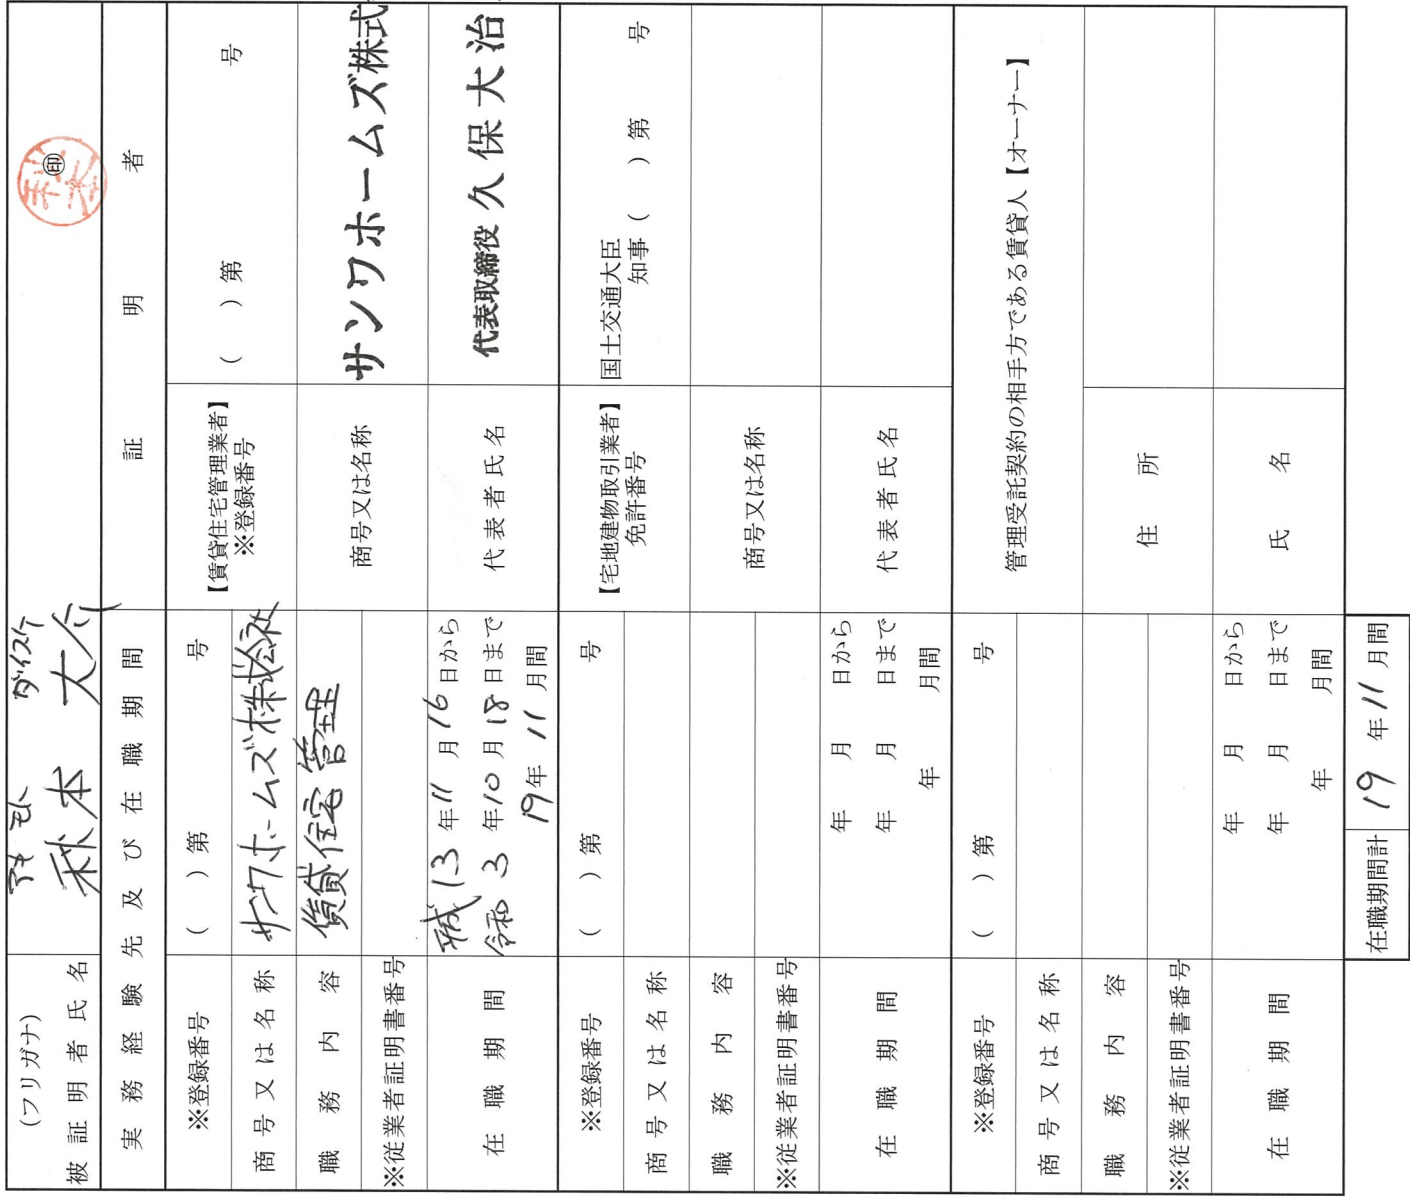 (フリガナ) アキ モト ダイスケ
被証明者氏名 秋本 大介 ㊞
実務経験先及び在職期間 証明者
※登録番号 ( )第 号 【賃貸住宅管理業者】※登録番号 ( )第 号
商号又は名称 サンワホームズ株式会社 商号又は名称 サンワホームズ株式
職務内容 賃貸住宅管理
※従業者証明書番号
代表者氏名 代表取締役 久保大治
在職期間 平成13年11月16日から
令和3年10月18日まで
19年11月間
※登録番号 ( )第 号 【宅地建物取引業者】免許番号 国土交通大臣 知事( )第 号
商号又は名称 商号又は名称
職務内容
※従業者証明書番号
代表者氏名
在職期間 年 月 日から
年 月 日まで
年 月間
※登録番号 ( )第 号 管理受託契約の相手方である賃貸人【オーナー】
商号又は名称
職務内容 住所
※従業者証明書番号
在職期間 年 月 日から 氏名
年 月 日まで
年 月間
在職期間計 19年11月間